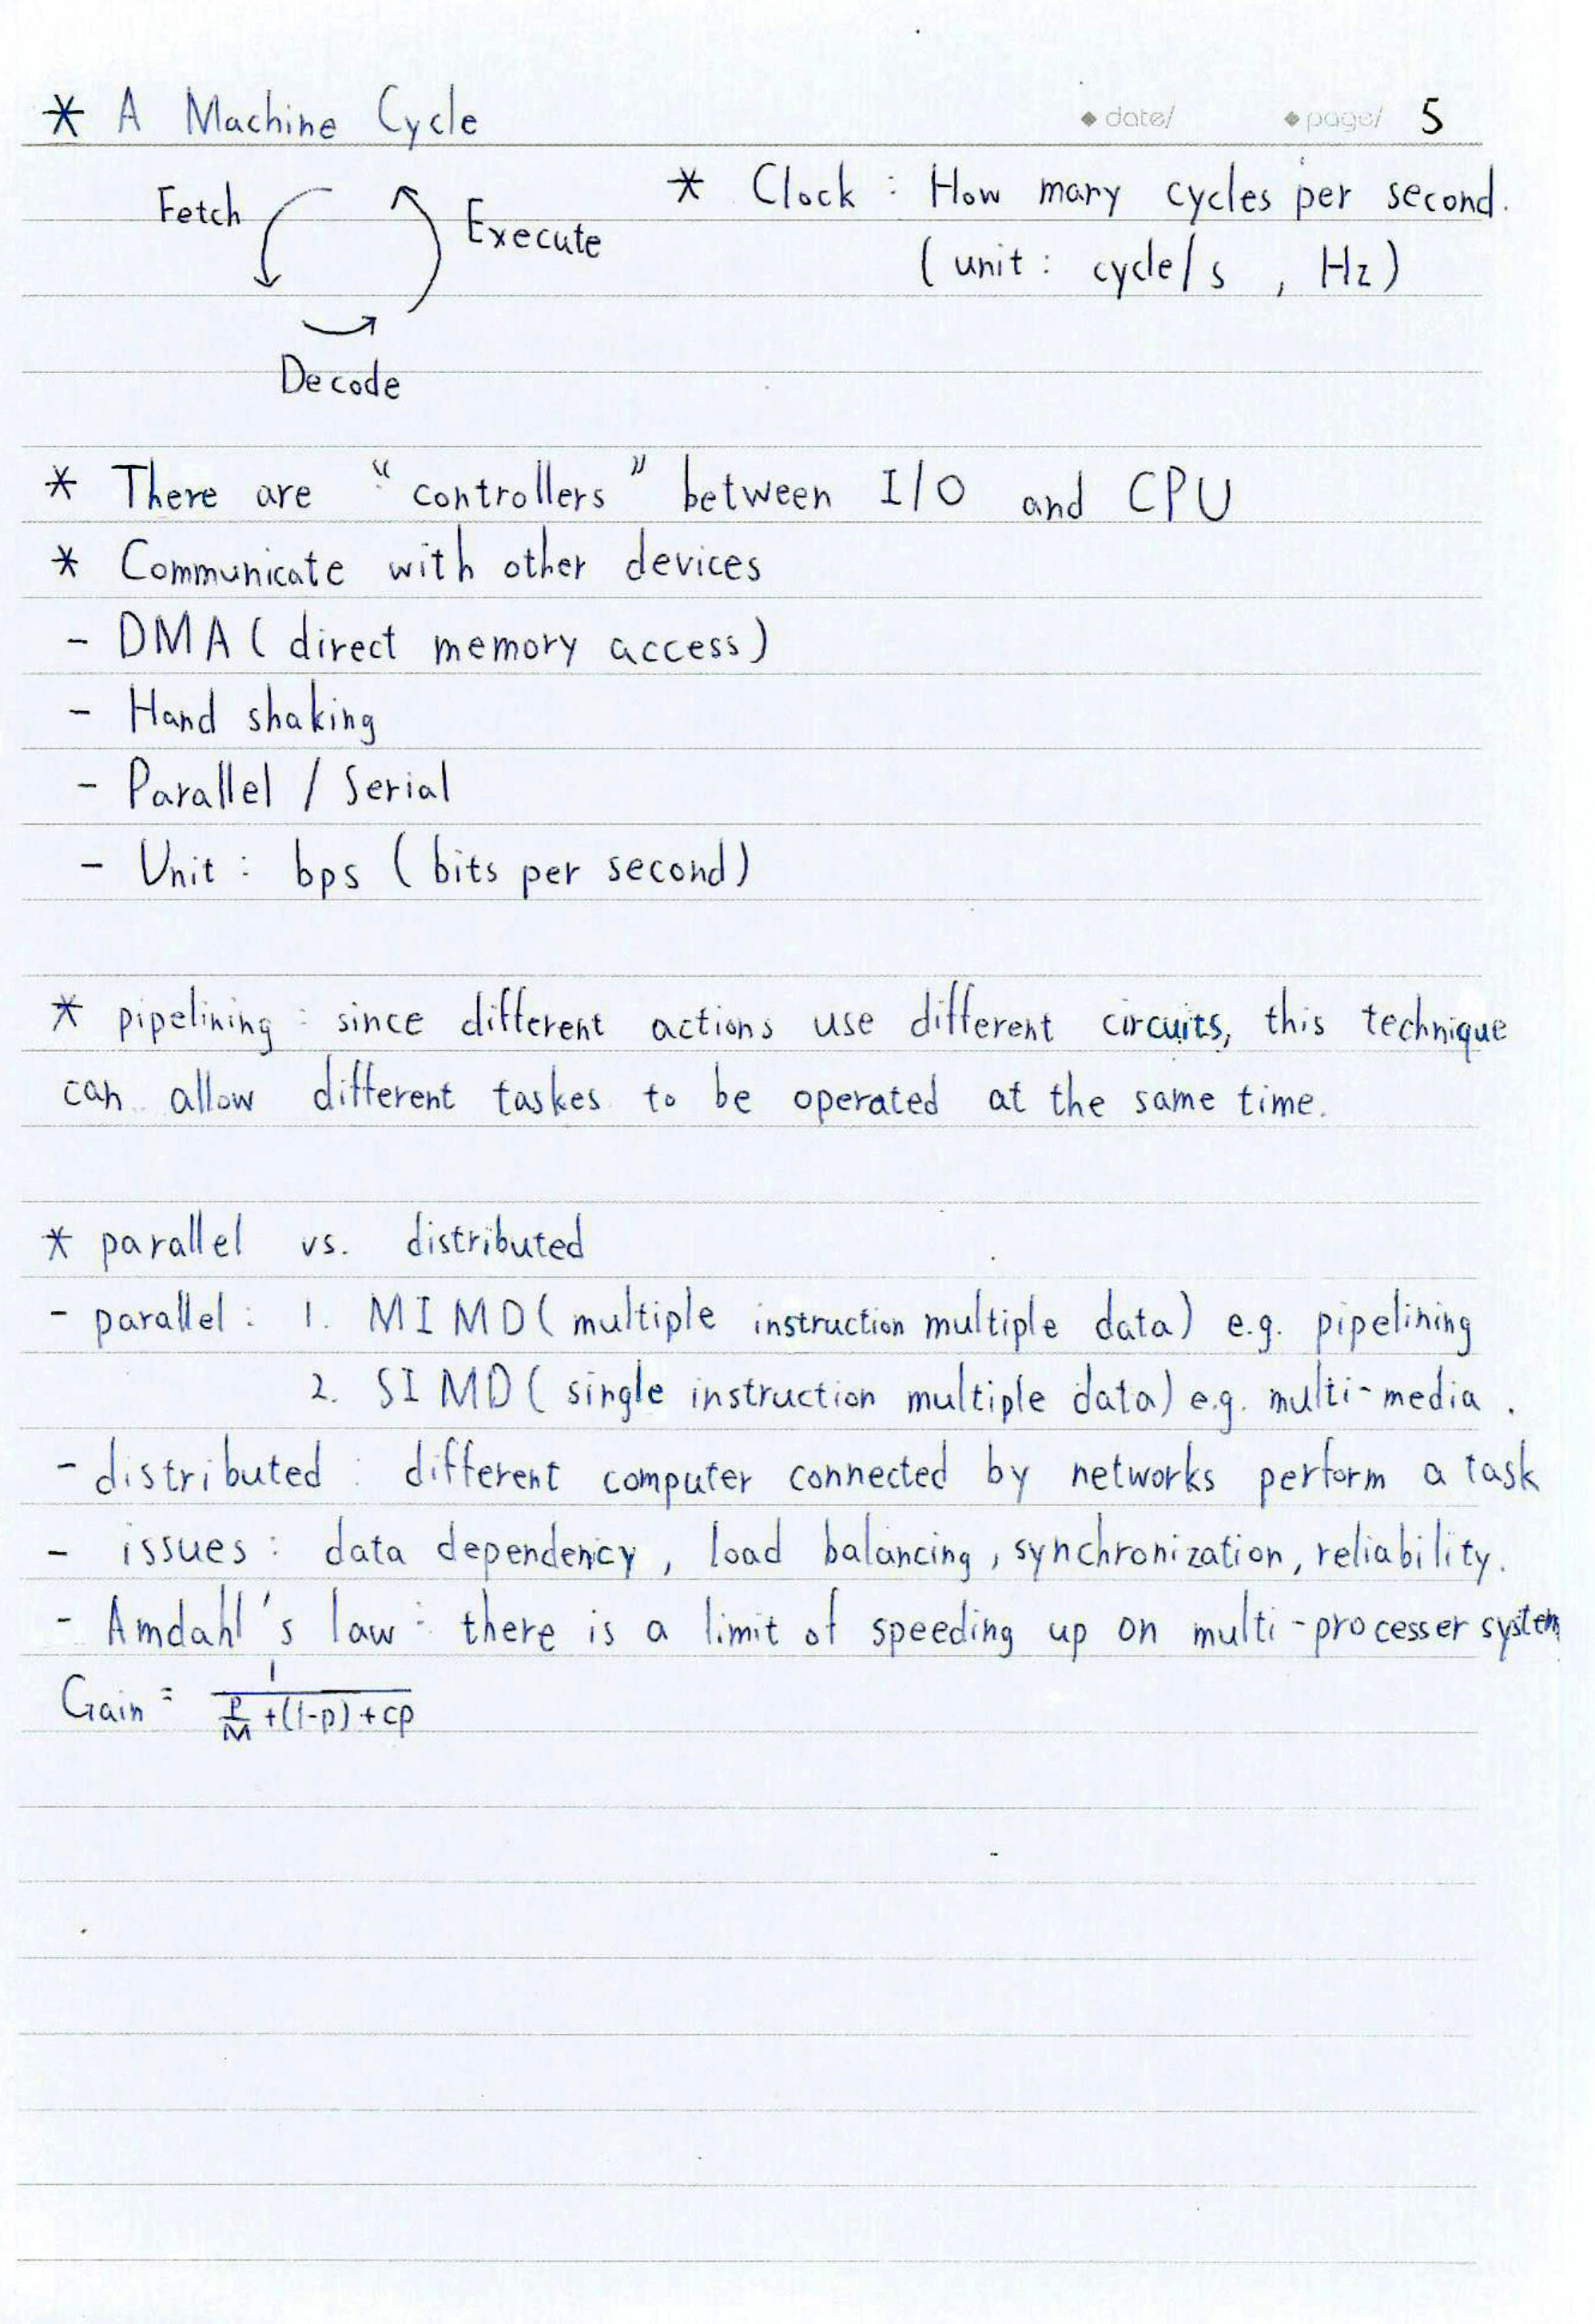 * A Machine Cycle
◆ date/ ◆ page/ 5
Fetch
Execute
Decode
* Clock : How many cycles per second.
(unit : cycle/s , Hz)
* There are “controllers” between I/O and CPU
* Communicate with other devices
- DMA ( direct memory access)
- Hand shaking
- Parallel / Serial
- Unit : bps ( bits per second)
* pipelining : since different actions use different circuits, this technique
can allow different taskes to be operated at the same time.
* parallel vs. distributed
- parallel : 1. MIMD ( multiple instruction multiple data) e.g. pipelining
2. SIMD ( single instruction multiple data) e.g. multi-media .
- distributed : different computer connected by networks perform a task
- issues : data dependency , load balancing , synchronization, reliability.
- Amdahl's law : there is a limit of speeding up on multi-processer system
Gain = 1 / (P/M + (1-p) + cp)